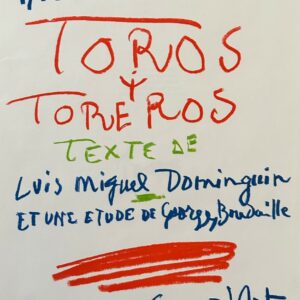 TOROS
Y
TOREROS
TEXTE DE
Luis Miguel Dominguin
ET UNE ETUDE DE Georges Boudaille